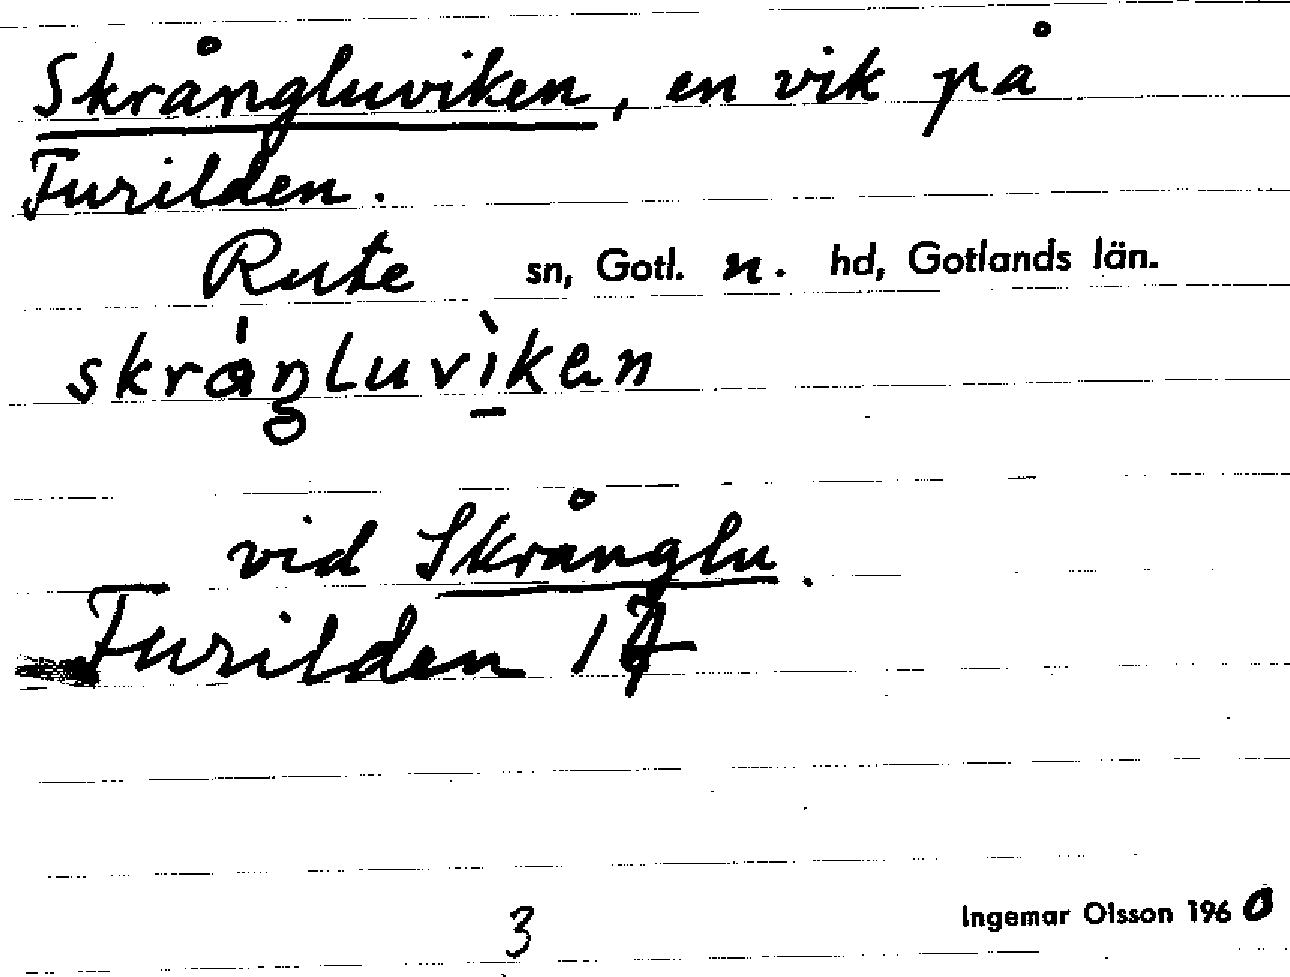 Skrångluviken, en vik på
Furilden.
Rute sn, Gotl. n. hd, Gotlands län.
skrǻŋluvìkɐn
vid Skrånglu.
Furilden 17
3
Ingemar Olsson 1960